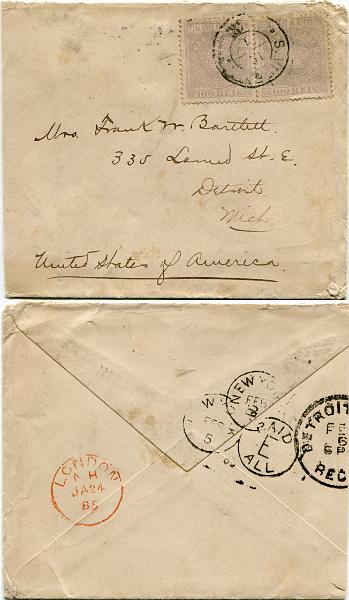 100 REIS 100 REIS
Mrs. Frank W. Bartlett.
335 Larned St. E.
Detroit
Mich.
United States of America.
NEW YO
FEB
PAID
E
ALL
5
DETROIT
FE
6
REC
LONDON
A H
JA 24
85